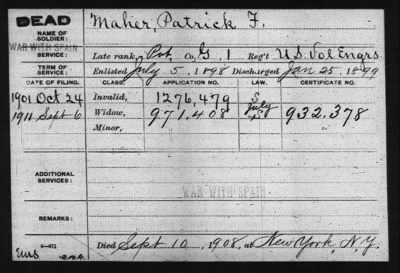 DEAD
NAME OF SOLDIER:
Maher, Patrick F.
WAR WITH SPAIN
Late rank, Pvt. Co. G, 1 Reg't U.S. Vol Engrs
TERM OF SERVICE:
Enlisted July 5, 1898 Discharged Jan 25, 1899
DATE OF FILING. CLASS. APPLICATION NO. LAW. CERTIFICATE NO.
1901 Oct 24 Invalid, 1276,479 S
1911 Sept 6 Widow, 971,408 July S 932,378
Minor,
ADDITIONAL SERVICES:
WAR WITH SPAIN
Died Sept 10, 1908, at New York, N.Y.